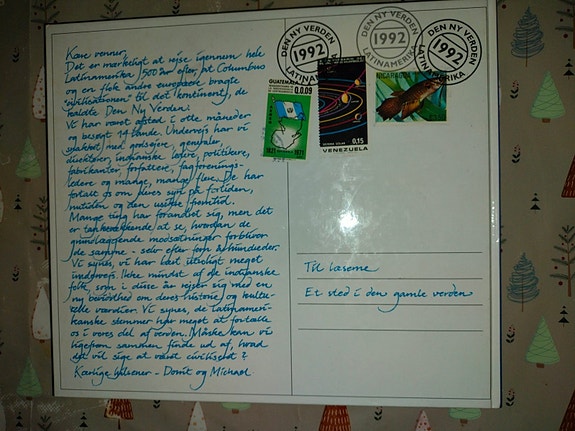 Kære venner,
Det er mærkeligt at rejse igennem hele
Latinamerika 500 år efter, at Columbus
og en flok andre europæere bragte
"civilisationen" til det kontinent, de
kaldte Den Ny Verden.
Vi har været afsted i otte måneder
og besøgt 14 lande. Undervejs har vi
snakket med godsejere, generaler,
direktører, indianske ledere, politikere,
fabrikanter, forfattere, fagforenings-
ledere og mange, mange flere. De har
fortalt os om deres syn på fortiden,
nutiden og den usikre fremtid.
Mange ting har forandret sig, men det
er tankevækkende at se, hvordan de
grundlæggende modsætninger forbliver
de samme - selv efter fem århundreder.
Vi synes, vi har lært utroligt meget
undervejs. Ikke mindst af de indianske
folk, som i disse år rejser sig med en
ny bevidsthed om deres historie og kultu-
relle værdier. Vi synes, de latinameri-
kanske stemmer har meget at fortælle
os i vores del af verden. Måske kan vi
ligefrem sammen finde ud af, hvad
det vil sige at være civiliseret?
Kærlige hilsener - Dorrit og Michael
DEN NY VERDEN
1992
LATINAMERIKA
DEN NY VERDEN
1992
LATINAMERIKA
DEN NY VERDEN
1992
LATINAMERIKA
GUATEMALA
0.09
1821 1971
0.15
VENEZUELA
NICARAGUA
Til læserne
Et sted i den gamle verden